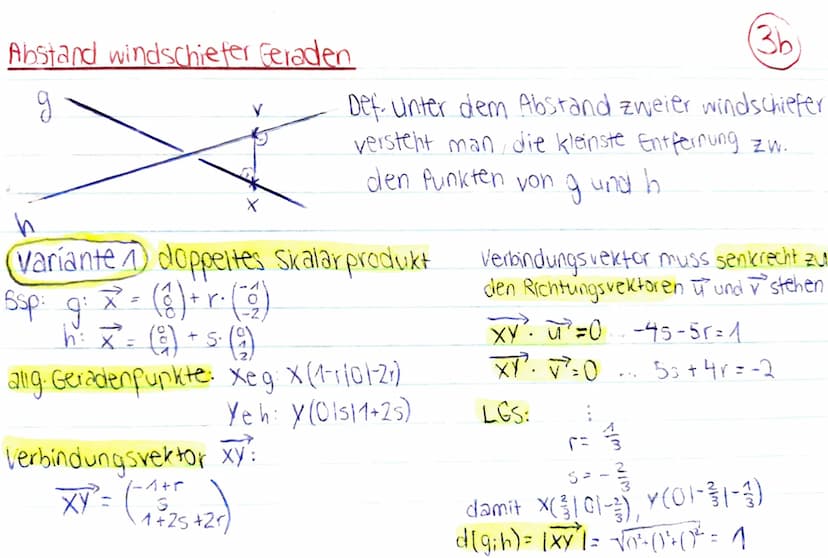 3b
Abstand windschiefer Geraden
g
h
Y
X
Def. Unter dem Abstand zweier windschiefer
versteht man, die kleinste Entfernung zw.
den Punkten von g und h
Variante 1 doppeltes Skalarprodukt
Bsp: g: \vec{x} = \begin{pmatrix} 1 \\ 0 \\ 0 \end{pmatrix} + r \cdot \begin{pmatrix} -1 \\ 0 \\ -2 \end{pmatrix}
h: \vec{x} = \begin{pmatrix} 0 \\ 0 \\ 1 \end{pmatrix} + s \cdot \begin{pmatrix} 0 \\ 1 \\ 2 \end{pmatrix}
allg. Geradenpunkte: X∈g: X(1-r|0|-2r)
Y∈h: Y(0|s|1+2s)
Verbindungsvektor \vec{XY}:
\vec{XY} = \begin{pmatrix} -1+r \\ s \\ 1+2s+2r \end{pmatrix}
Verbindungsvektor muss senkrecht zu
den Richtungsvektoren \vec{u} und \vec{v} stehen
\vec{XY} · \vec{u} = 0 ... -4s-5r=1
\vec{XY} · \vec{v} = 0 ... 5s+4r=-2
LGS: ⋮
r= \frac{1}{3}
s= -\frac{2}{3}
damit X(\frac{2}{3}|0|-\frac{2}{3}), Y(0|-\frac{2}{3}|-\frac{1}{3})
d(g;h) = |\vec{XY}| = \sqrt{()^2+()^2+()^2} = 1